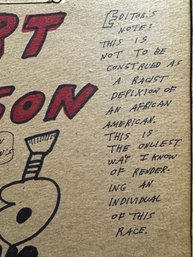 RT
SON
EDITOR'S
NOTE:
THIS IS
NOT TO BE
CONSTRUED AS
A RACIST
DEPIXION OF
AN AFRICAN
AMERICAN.
THIS IS
THE ONLIEST
WAY I KNOW
OF RENDER-
ING AN
INDIVIDUAL
OF THIS
RACE.